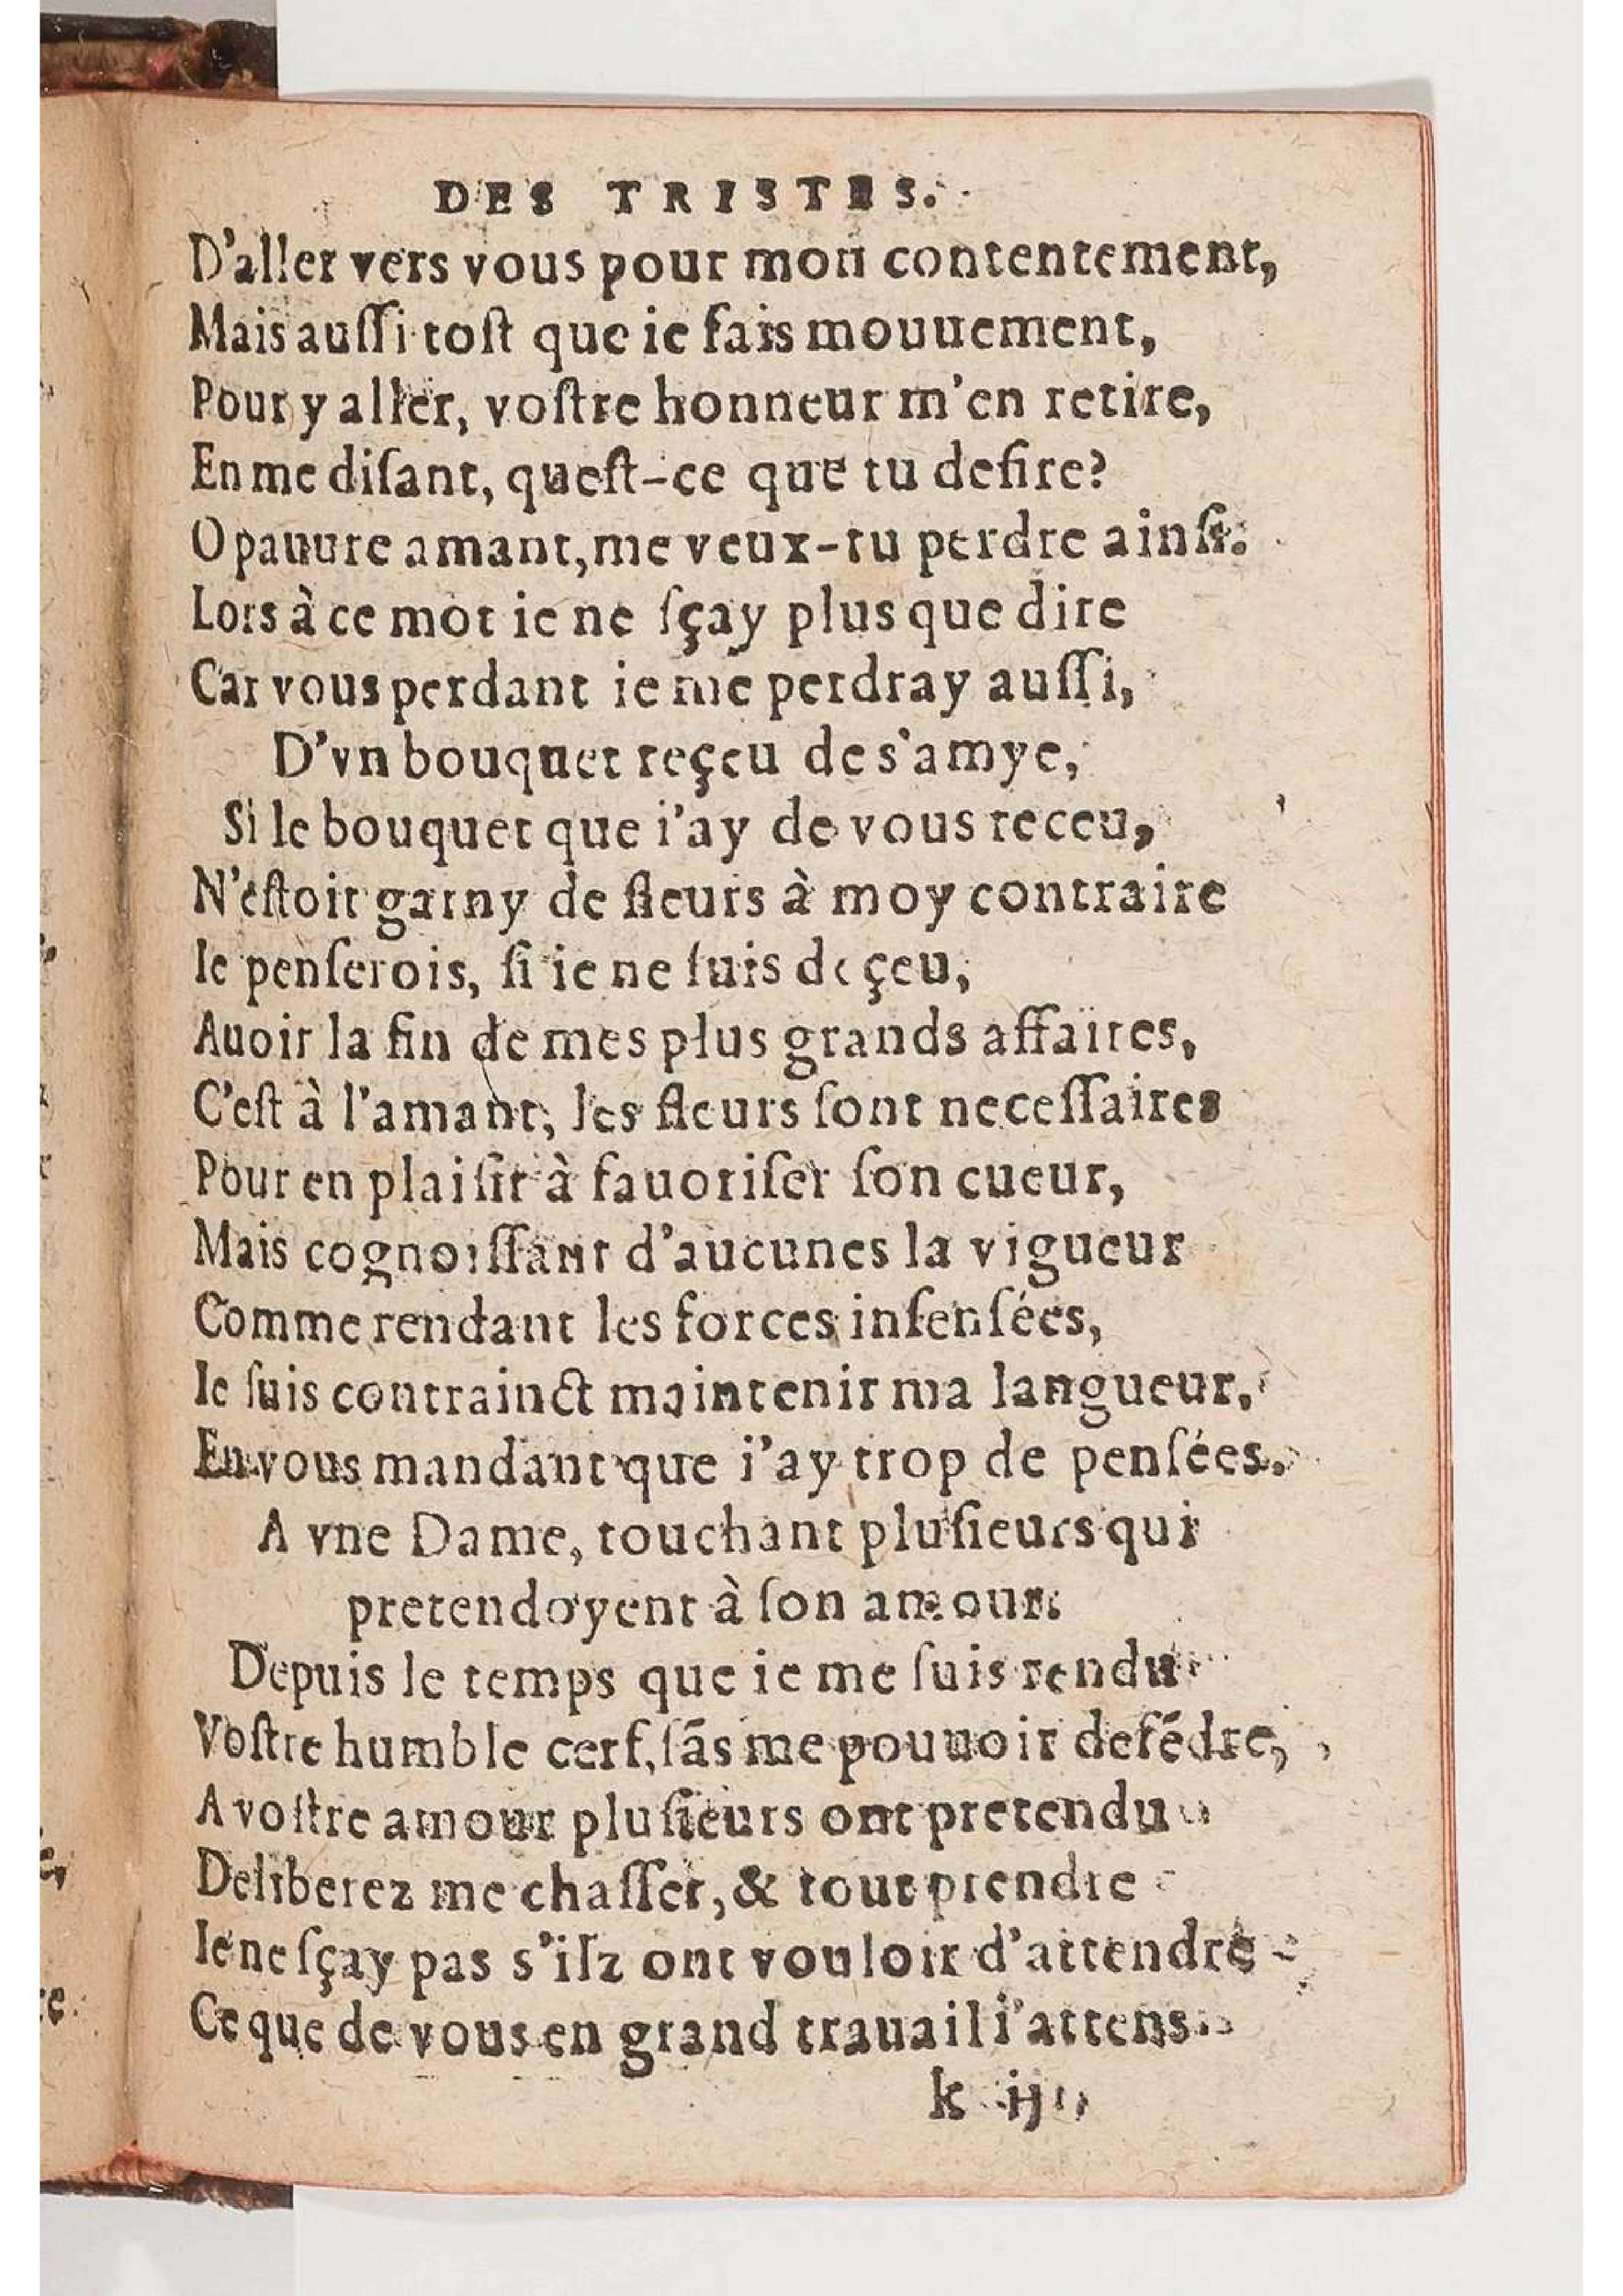 DES TRISTES.
D'aller vers vous pour mon contentement,
Mais auſſi toſt que ie fais mouuement,
Pour y aller, voſtre honneur m'en retire,
En me diſant, queſt-ce que tu deſire?
O pauure amant, me veux-tu perdre ainſi:
Lors à ce mot ie ne ſçay plus que dire
Car vous perdant ie me perdray auſſi,
D'vn bouquet reçeu de s'amye,
Si le bouquet que i'ay de vous receu,
N'eſtoit garny de fleurs à moy contraire
Ie penſerois, ſi ie ne ſuis deçeu,
Auoir la fin de mes plus grands affaires,
C'eſt à l'amant, les fleurs ſont neceſſaires
Pour en plaiſir à fauoriſer ſon cueur,
Mais cognoiſſant d'aucunes la vigueur
Comme rendant les forces inſenſées,
Ie ſuis contrainct maintenir ma langueur,
En vous mandant que i'ay trop de penſées.
A vne Dame, touchant pluſieurs qui
pretendoyent à ſon amour.
Depuis le temps que ie me ſuis rendu
Voſtre humble cerf, ſãs me pouuoir defẽdre,
A voſtre amour pluſieurs ont pretendu
Deliberez me chaſſer, & tout prendre
Ie ne ſçay pas s'ilz ont vouloir d'attendre
Ce que de vous en grand trauail i'attens.
k ij